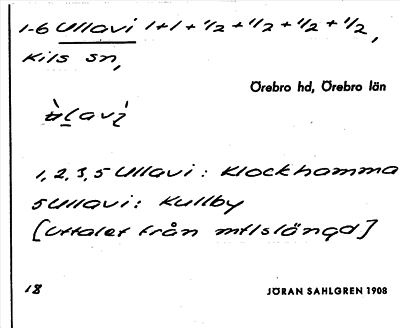 1-6 Ullavi 1+1+1/2+1/2+1/2+1/2,
Kils sn,
Örebro hd, Örebro län
1, 2, 3, 5 Ullavi: Klockhamma
5 Ullavi: Kullby
[Uttalet från mtlslängd]
18
JÖRAN SAHLGREN 1908